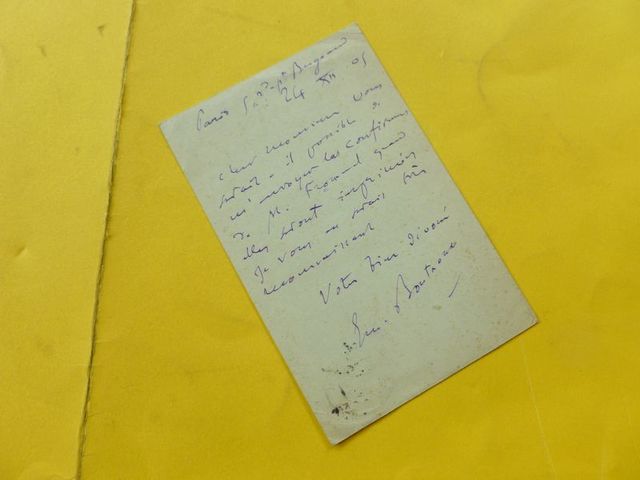 Paris 5 rd pt Bugeaud
24 XII 05
Cher Monsieur Vous
serait-il possible de
m'envoyer les conférences
de M.
elles seront imprimées
Je vous en serais très
reconnaissant
Votre bien dévoué
Em. Boutroux